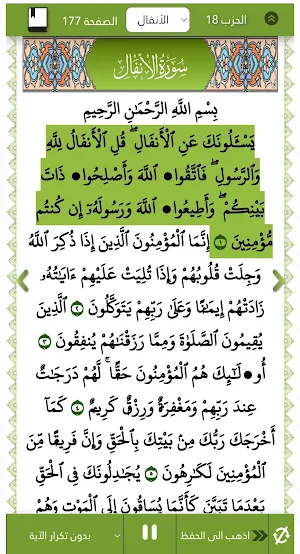 الحزب 18
الأنفال
الصفحة 177
سُورَةُ الأَنفَالِ
بِسْمِ اللَّهِ الرَّحْمَٰنِ الرَّحِيمِ
يَسْـَٔلُونَكَ عَنِ ٱلْأَنفَالِ ۖ قُلِ ٱلْأَنفَالُ لِلَّهِ
وَٱلرَّسُولِ ۖ فَٱتَّقُوا۟ ٱللَّهَ وَأَصْلِحُوا۟ ذَاتَ
بَيْنِكُمْ ۖ وَأَطِيعُوا۟ ٱللَّهَ وَرَسُولَهُۥٓ إِن كُنتُم
مُّؤْمِنِينَ ١ إِنَّمَا ٱلْمُؤْمِنُونَ ٱلَّذِينَ إِذَا ذُكِرَ ٱللَّهُ
وَجِلَتْ قُلُوبُهُمْ وَإِذَا تُلِيَتْ عَلَيْهِمْ ءَايَٰتُهُۥ
زَادَتْهُمْ إِيمَٰنًا وَعَلَىٰ رَبِّهِمْ يَتَوَكَّلُونَ ٢ ٱلَّذِينَ
يُقِيمُونَ ٱلصَّلَوٰةَ وَمِمَّا رَزَقْنَٰهُمْ يُنفِقُونَ ٣
أُو۟لَٰٓئِكَ هُمُ ٱلْمُؤْمِنُونَ حَقًّا ۚ لَّهُمْ دَرَجَٰتٌ
عِندَ رَبِّهِمْ وَمَغْفِرَةٌ وَرِزْقٌ كَرِيمٌ ٤ كَمَآ
أَخْرَجَكَ رَبُّكَ مِنۢ بَيْتِكَ بِٱلْحَقِّ وَإِنَّ فَرِيقًا مِّنَ
ٱلْمُؤْمِنِينَ لَكَٰرِهُونَ ٥ يُجَٰدِلُونَكَ فِى ٱلْحَقِّ
بَعْدَمَا تَبَيَّنَ كَأَنَّمَا يُسَاقُونَ إِلَى ٱلْمَوْتِ وَهُمْ
اذهب الى الحفظ
بدون تكرار الآية